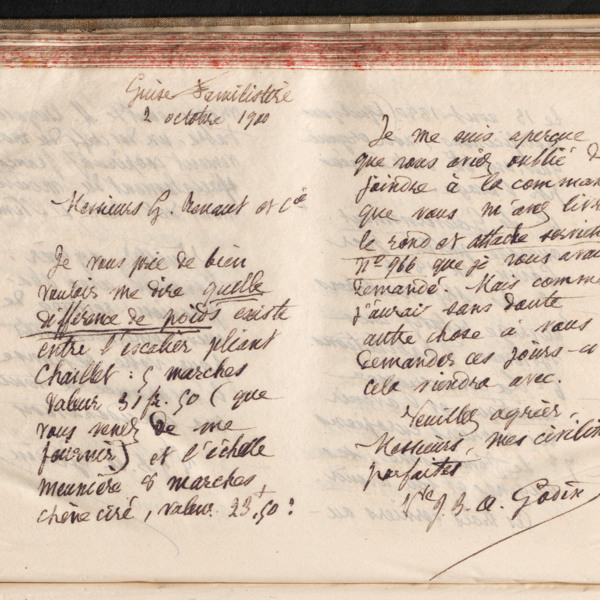 Guise Familistère
2 octobre 1900
Messieurs G. Renaut et Cie
Je vous prie de bien
vouloir me dire quelle
différence de poids existe
entre l'escalier pliant
Chaillet : 5 marches
valeur 31 fr. 50 (que
vous venez de me
fournir) et l'échelle
meunière 8 marches
chêne ciré, valeur 23,50 ?
Je me suis aperçue
que vous aviez oublié d
joindre à la comman
que vous m'avez livr
le rond et attache serviet
n° 966 que je vous avai
demandé. Mais comme
j'aurais sans doute
autre chose à vous
demander ces jours-ci
cela viendra avec.
Veuillez agréer,
Messieurs, mes civilit
parfaites
Vve J. B. A. Godin